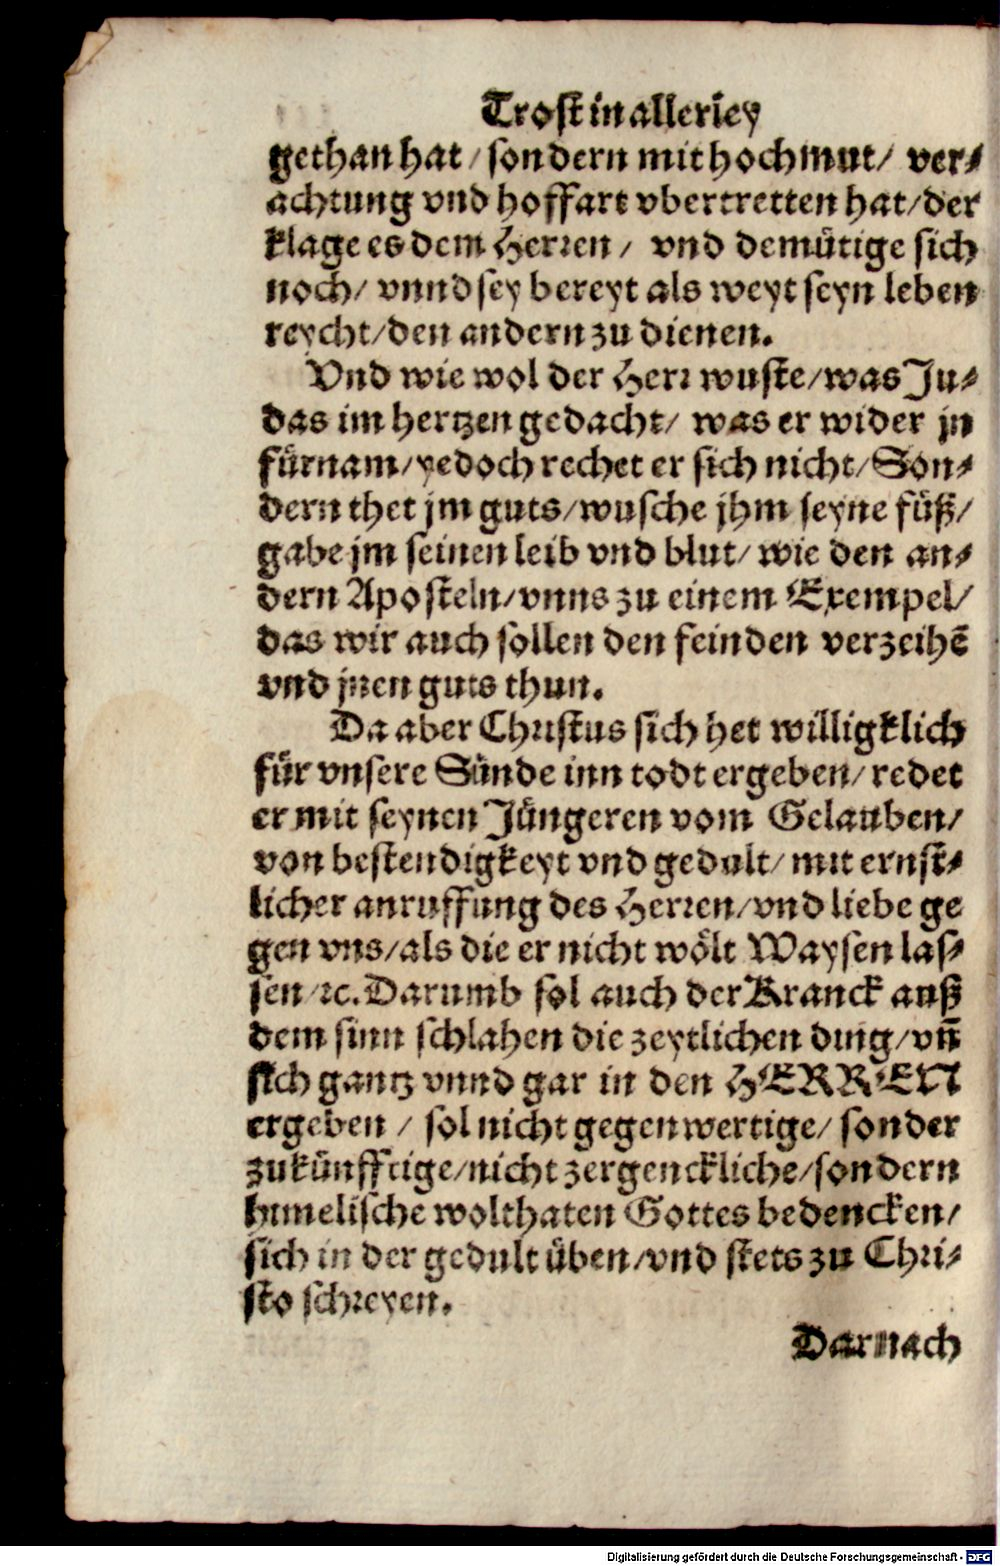 Trost in allerley
gethan hat / sondern mit hochmut / ver⸗
achtung vnd hoffart vbertretten hat / der
klage es dem Herren / vnd demütige sich
noch / vnnd sey bereyt als weyt seyn leben
reycht / den andern zu dienen.
Vnd wie wol der Herr wuste / was Ju⸗
das im hertzen gedacht / was er wider jn
fürnam / yedoch rechet er sich nicht / Son⸗
dern thet jm guts / wusche jhm seyne füß /
gabe jm seinen leib vnd blut / wie den an⸗
dern Aposteln / vnns zu einem Exempel /
das wir auch sollen den feinden verzeihē
vnd jnen guts thun.
Da aber Christus sich het willigklich
für vnsere Sünde inn todt ergeben / redet
er mit seynen Jüngeren vom Gelauben /
von bestendigkeyt vnd gedult / mit ernst⸗
licher anruffung des Herren / vnd liebe ge
gen vns / als die er nicht wölt Waysen las⸗
sen / ꝛc. Darumb sol auch der Kranck auß
dem sinn schlahen die zeytlichen ding / vñ
sich gantz vnnd gar in den HERREN
ergeben / sol nicht gegenwertige / sonder
zukünfftige / nicht zergenckliche / sondern
himelische wolthaten Gottes bedencken /
sich in der gedult üben / vnd stets zu Chri⸗
sto schreyen.
Darnach
Digitalisierung gefördert durch die Deutsche Forschungsgemeinschaft - DFG